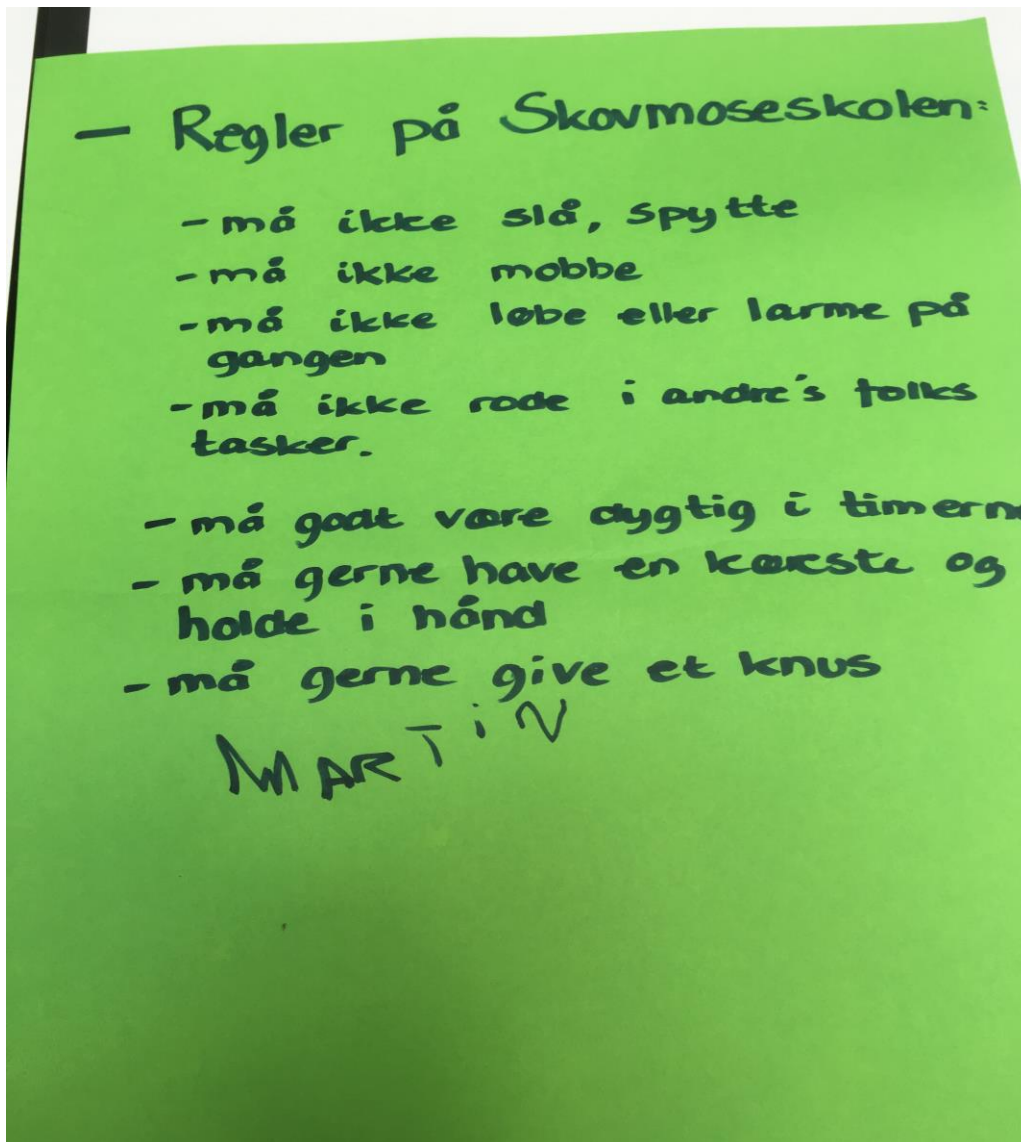 - Regler på Skovmoseskolen:
- må ikke slå, spytte
- må ikke mobbe
- må ikke løbe eller larme på
gangen
- må ikke rode i andre's folks
tasker.
- må godt være dygtig i timerne
- må gerne have en kæreste og
holde i hånd
- må gerne give et knus
MARTiN